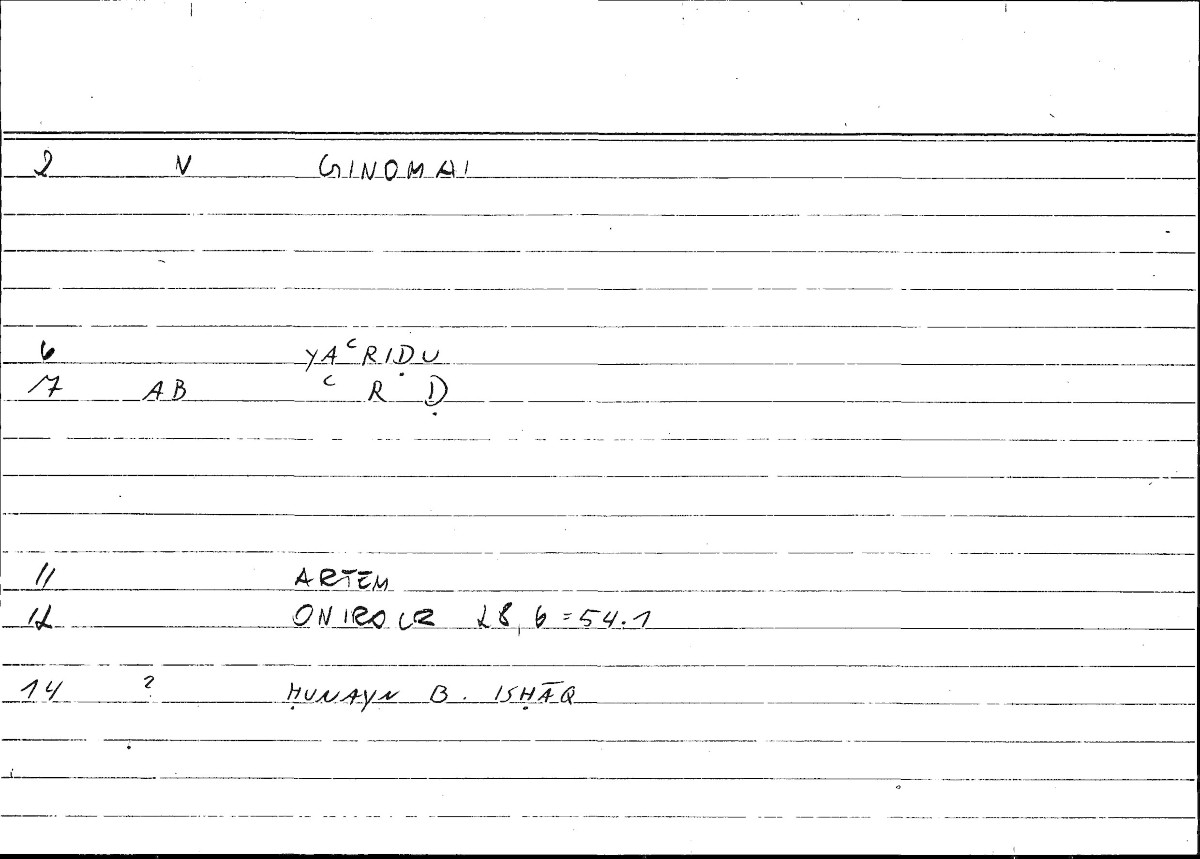 2 V GINOMAI
6 YAᶜRIḌU
7 AB ᶜ R Ḍ
11 ARTEM
12 ONIROCR 28,6=54.1
14 ? ḤUNAYN B. ISḤĀQ